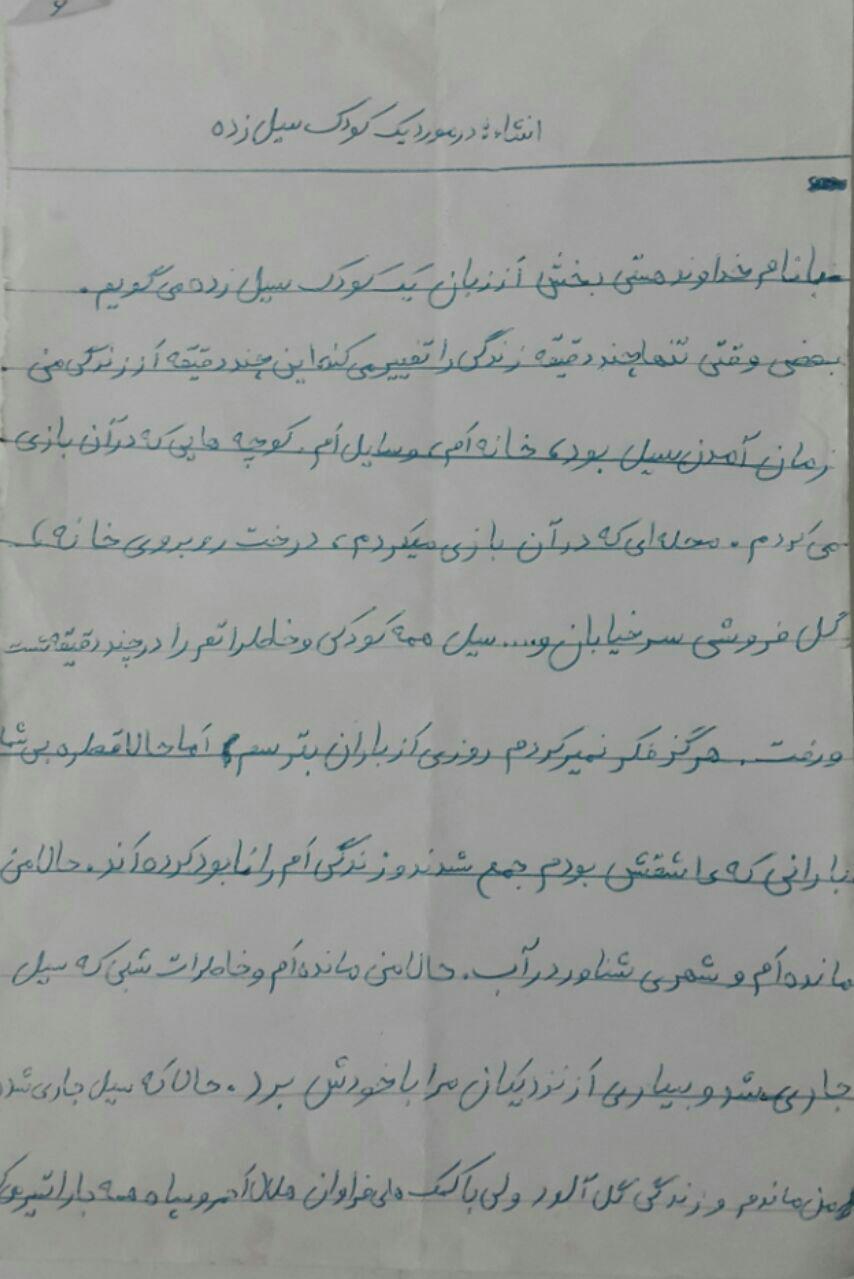 انشاء: در مورد یک کودک سیل زده
با نام خداوند هستی بخش از زبان یک کودک سیل زده می گویم.
بعضی وقتی تنها چند دقیقه زندگی را تغییر می کند، این چند دقیقه از زندگی من
زمان آمدن سیل بود، خانه ام، وسایل ام. کوچه هایی که در آن بازی
می کردم. محله ای که در آن بازی میکردم، درخت روبروی خانه،
گل فروشی سر خیابان و.... سیل همه کودکی و خاطراتم را در چند دقیقه شست
و رفت. هرگز فکر نمیکردم روزی از باران بترسم، اما حالا قطره
بارانی که عاشقش بودم جمع شدند و زندگی ام را نابود کرده اند. حالا من
مانده ام و شهری شناور در آب. حالا من مانده ام و خاطرات شبی که سیل
جاری شد و بسیاری از نزدیکان مرا با خودش برد. حالا که سیل جاری شد
من ماندم و زندگی گل آلود ولی با کمک های فراوان هلال احمر و سپاه همه جا را